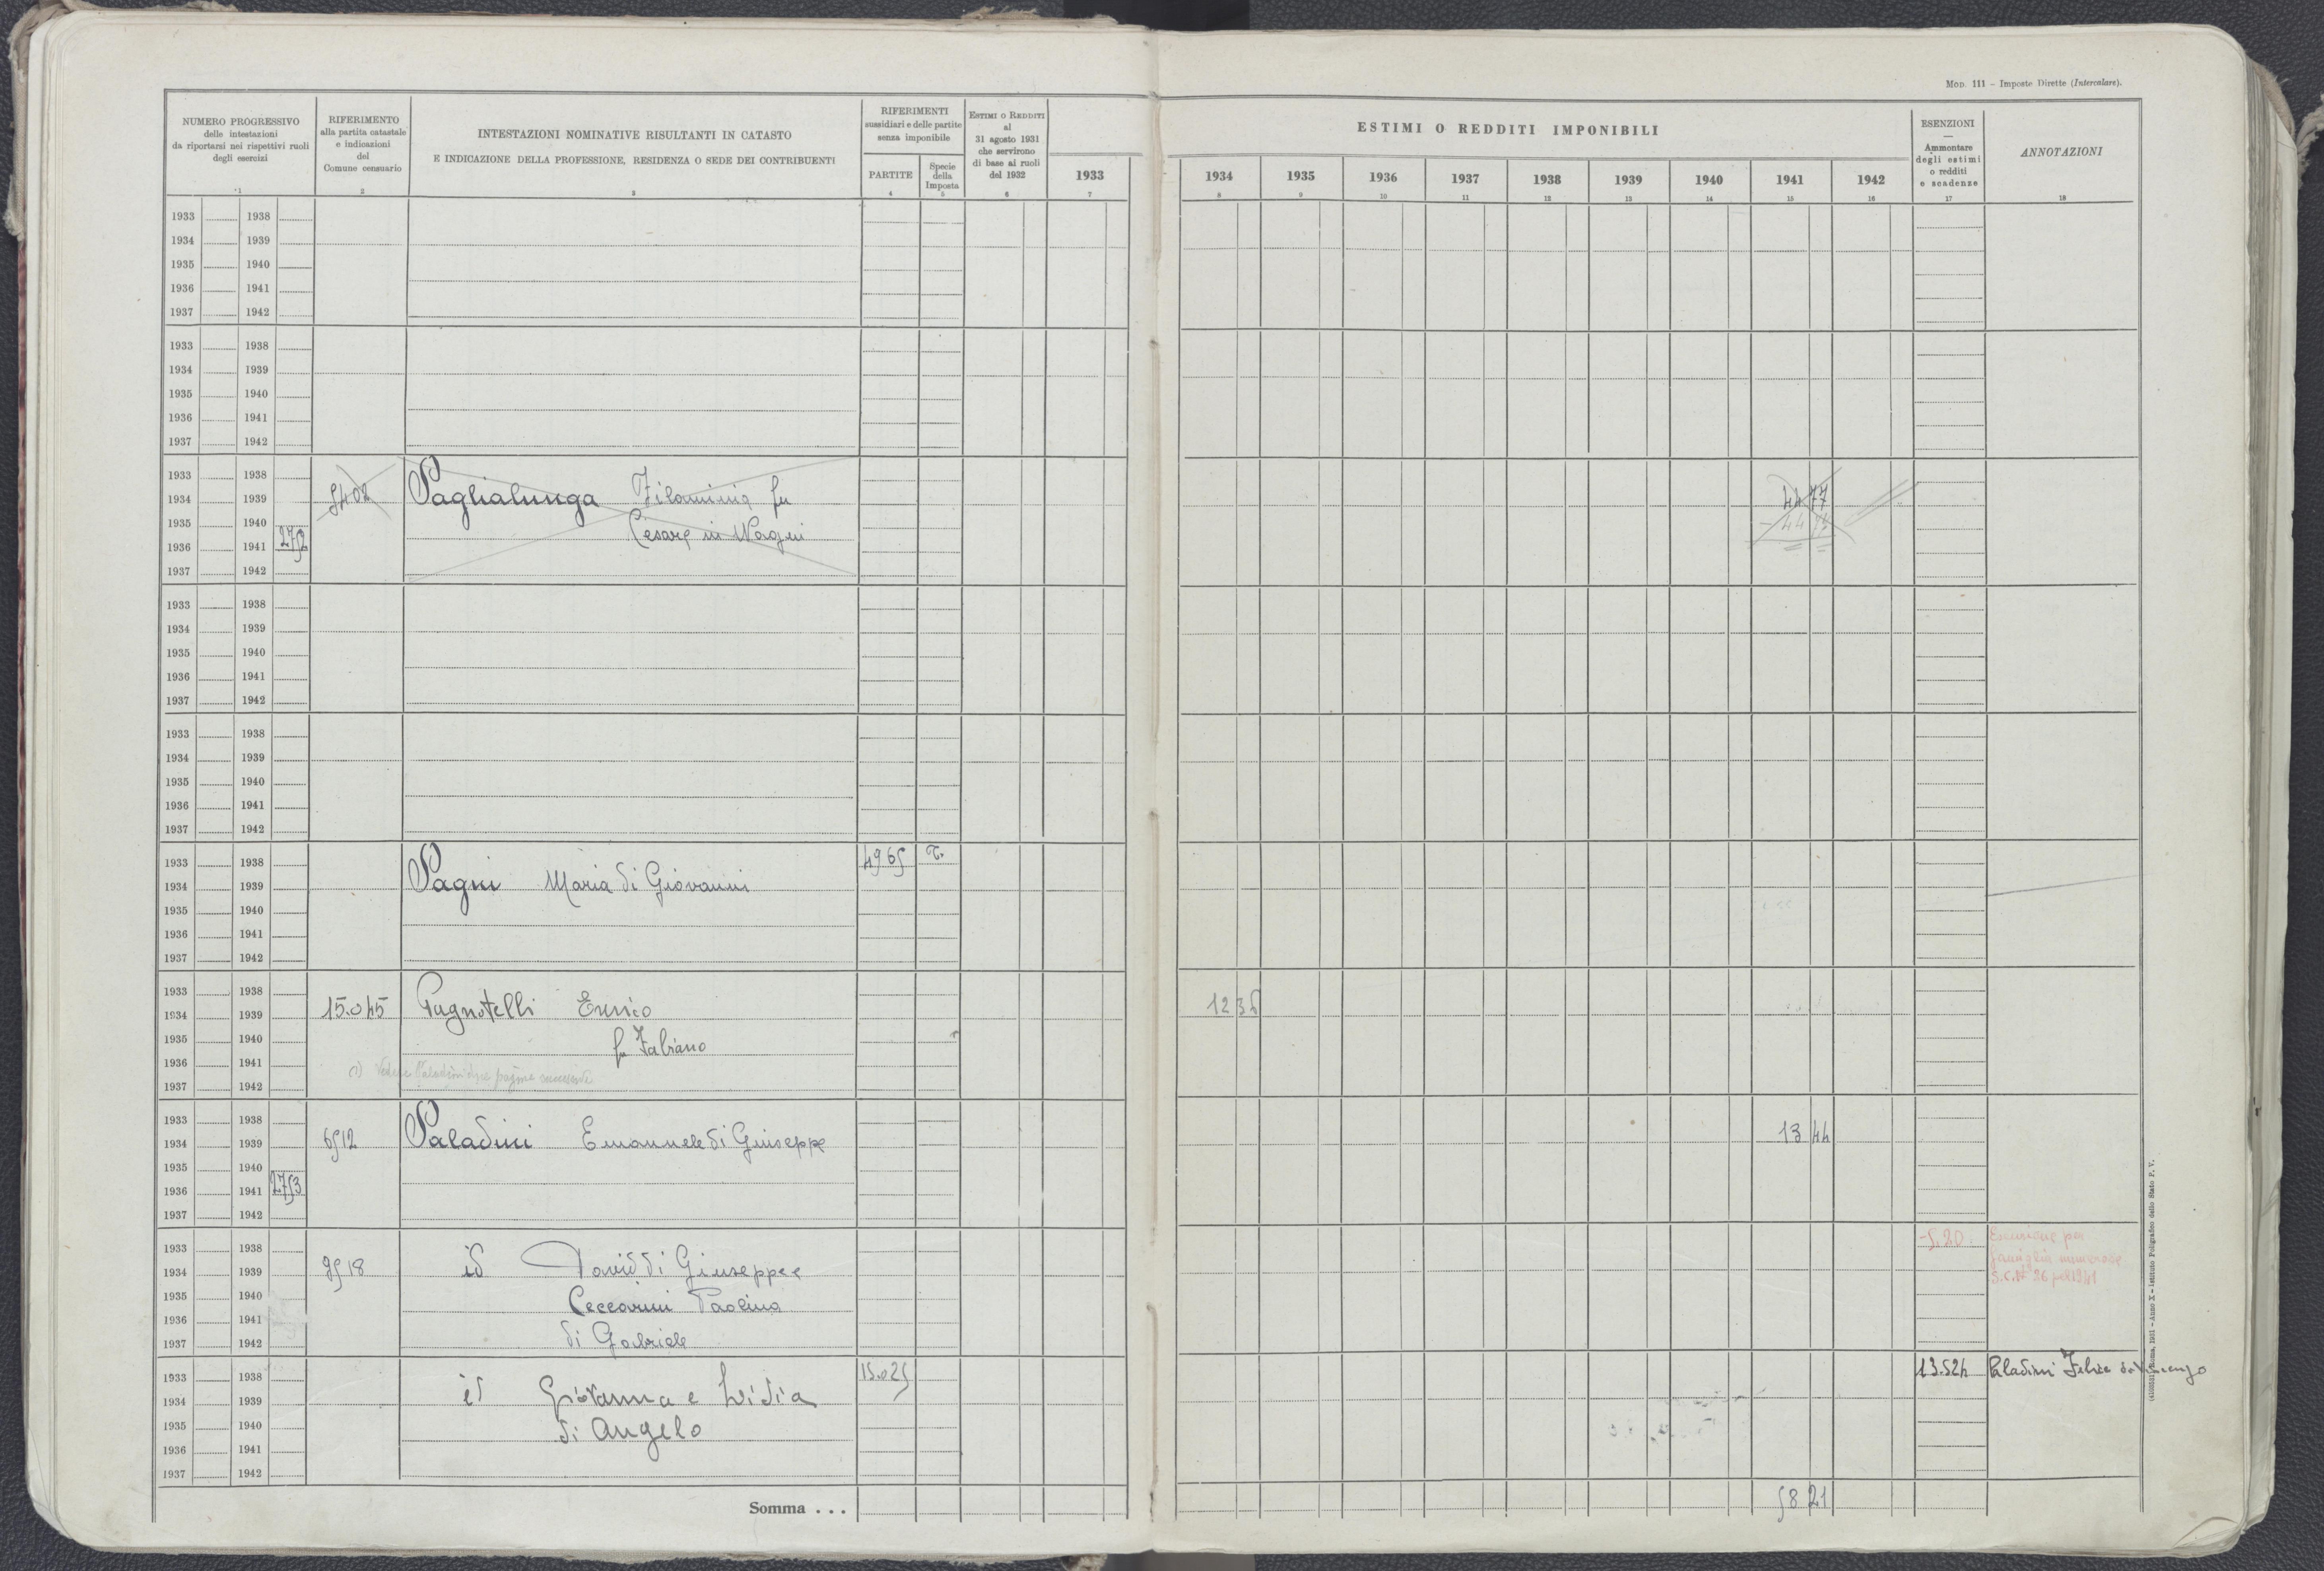 MOD. 111 – Imposte Dirette (Intercalare).
NUMERO PROGRESSIVO
delle intestazioni
da riportarsi nei rispettivi ruoli
degli esercizi
1
RIFERIMENTO
alla partita catastale
e indicazioni
del
Comune censuario
2
INTESTAZIONI NOMINATIVE RISULTANTI IN CATASTO
E INDICAZIONE DELLA PROFESSIONE, RESIDENZA O SEDE DEI CONTRIBUENTI
3
RIFERIMENTI
sussidiari e delle partite
senza imponibile
PARTITE
4
Specie
della
Imposta
5
ESTIMI O REDDITI
al
31 agosto 1931
che servirono
di base ai ruoli
del 1932
6
1933
7
ESTIMI O REDDITI IMPONIBILI
1934 1935 1936 1937 1938 1939 1940 1941 1942
8 9 10 11 12 13 14 15 16
ESENZIONI
—
Ammontare
degli estimi
o redditi
e scadenze
17
ANNOTAZIONI
18
1933 1938
1934 1939
1935 1940
1936 1941
1937 1942
1933 1938
1934 1939
1935 1940
1936 1941
1937 1942
1933 1938
1934 1939 5402 Paglialunga Filominia fu 44 77
1935 1940 Cesare in Wagni
1936 1941 2752
1937 1942
1933 1938
1934 1939
1935 1940
1936 1941
1937 1942
1933 1938
1934 1939
1935 1940
1936 1941
1937 1942
1933 1938 4965 T.
1934 1939 Pagni Maria di Giovanni
1935 1940
1936 1941
1937 1942
1933 1938
1934 1939 15.045 Pagnotelli Enrico 12 35
1935 1940 fu Fabiano
1936 1941 (1) Vedere Paladini due pagine
1937 1942
1933 1938
1934 1939 6512 Paladini Emanuele di Giuseppe 13 44
1935 1940
1936 1941 2753
1937 1942
1933 1938 -5.20. Esenzione per
1934 1939 9518 id David di Giuseppe e famiglia numerosa
1935 1940 Ceccarini Paolina S.C. N° 26 pel 1941
1936 1941
1937 1942 di Gabriele
1933 1938 15.025 13.524 Paladini Felice di Vincenzo
1934 1939 id Giovanna e Lidia
1935 1940 di Angelo
1936 1941
1937 1942
Somma . . . 58 21
Roma, 1931 – Anno X – Istituto Poligrafico dello Stato P. V.